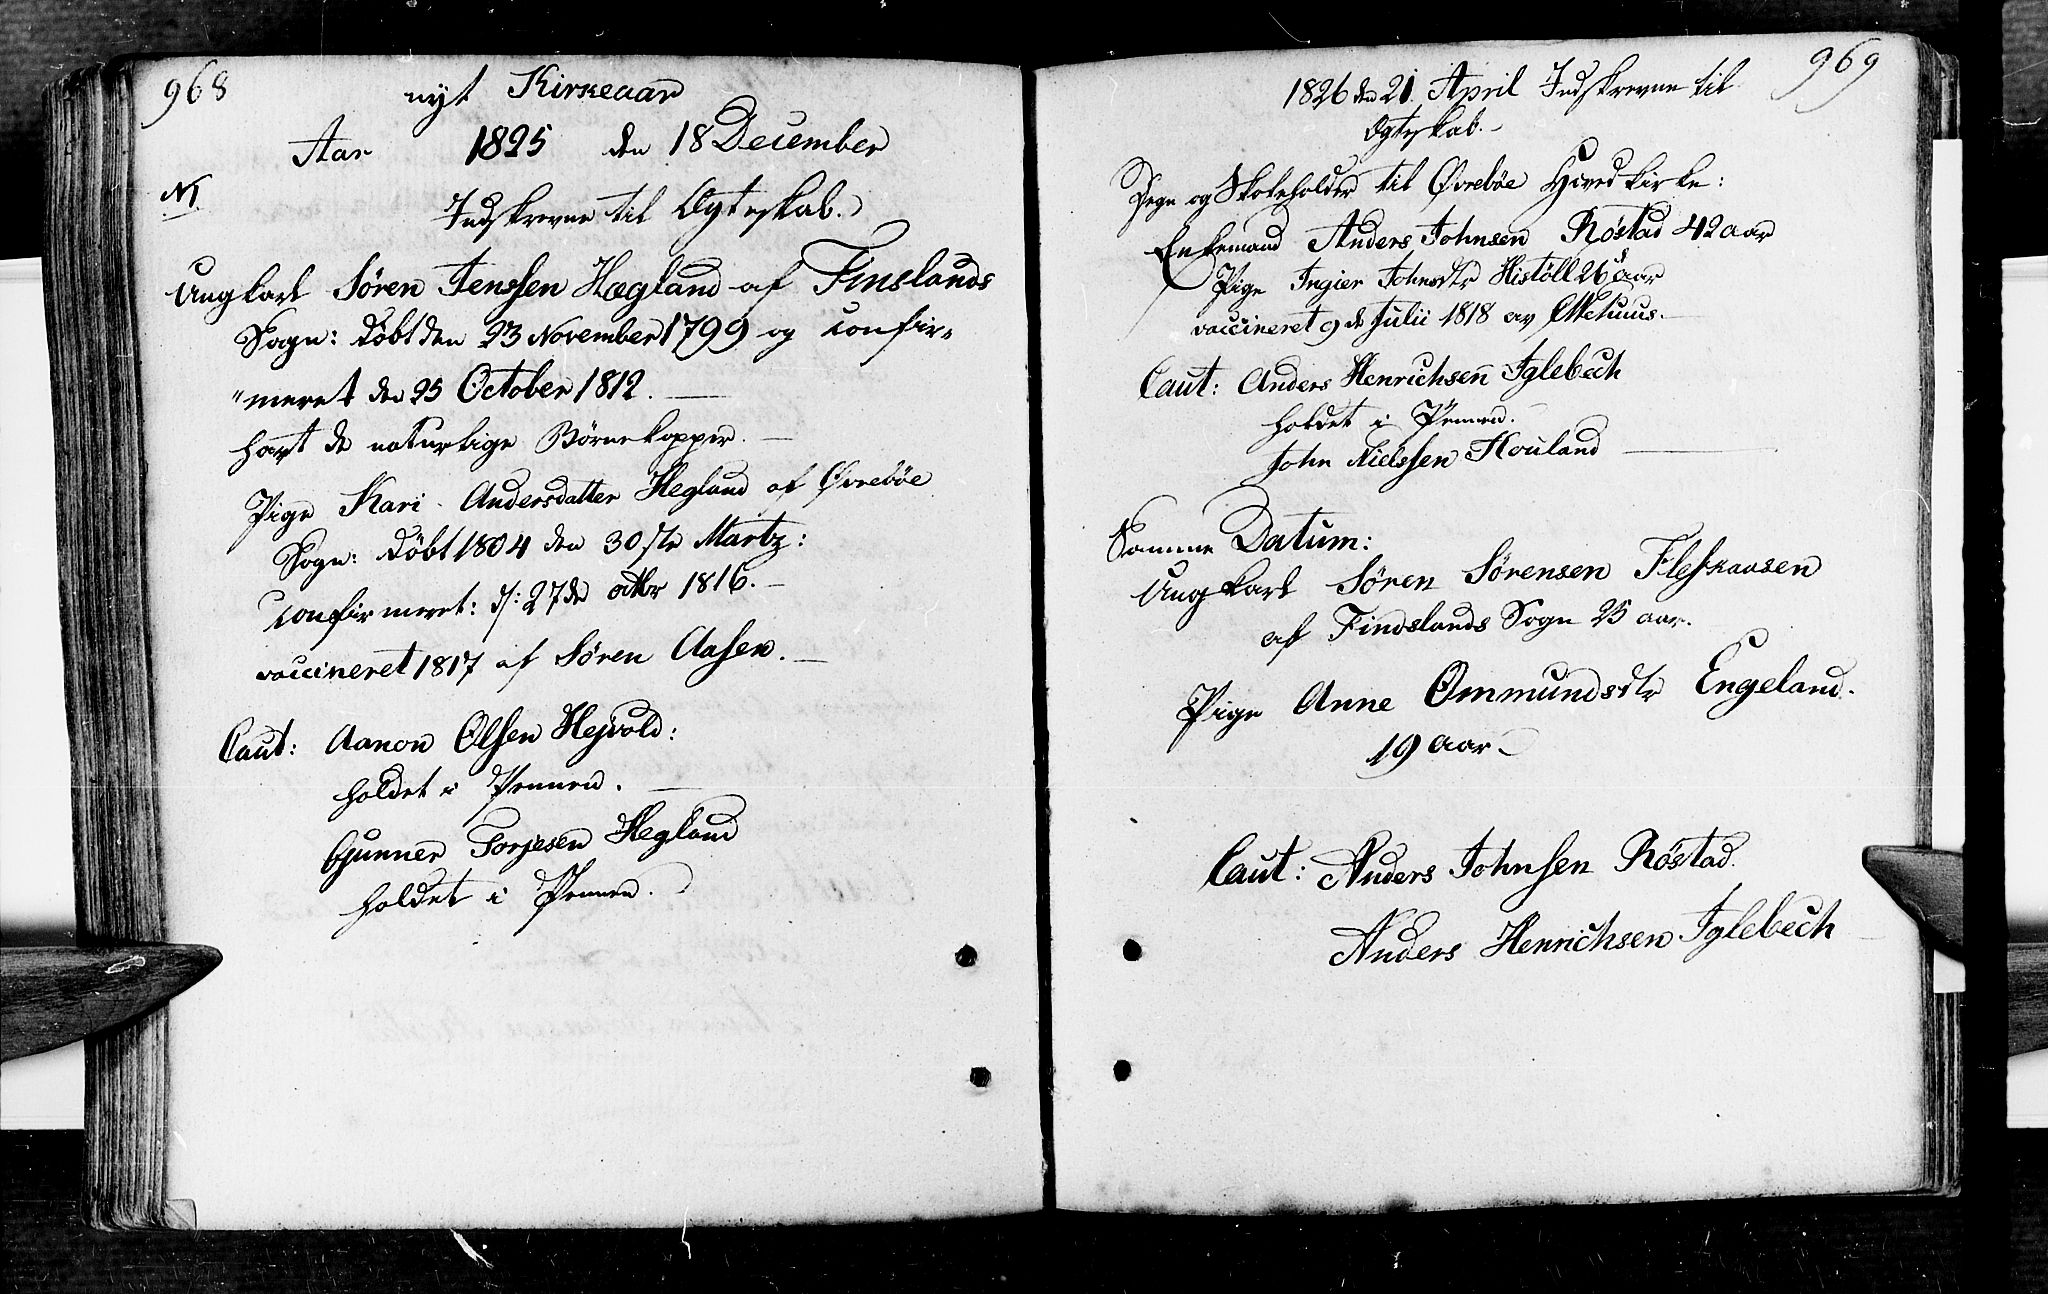 968
nyt Kirkeaar
Aar 1825 den 18 December
N1
Indskrevne til Ægteskab.
Ungkarl Sören Jenssen Hægland af Finslands
Sogn: döbt den 23 November 1799 og confir=
"meret den 25 October 1812.
havt de naturlige Börnekopper.
Pige Kari Andersdatter Hegland af Øvreböe
Sogn: döbt 1804 den 30ste Martz:
Confirmeret: d: 27de octbr 1816.
vaccineret 1817 af Sören Aasen.
Caut: Aanon Olsen Hejvold:
holdet i Pennen.
Gunner Torjesen Hegland
holdet i Pennen.
969
1826 den 21. April Indskrevne til
Ægteskab.
Degn og Skoleholder til Øvreböe Hovedkirke:
Enkemand Anders Johnsen Röstad 42 aar
Pige Ingier Johnsdtr Histöll 26 aar
vaccineret 9 de Julii 1818 av
Caut: Anders Henrichsen Iglebech
holdet i Pennen.
John Nielssen Houland
Samme Datum:
Ungkarl Sören Sörensen Fleskaasen
af Findslands Sogn 25 aar.
Pige Anne Ommundsdtr Engeland.
19 aar
Caut: Anders Johnsen Röstad.
Anders Henrichsen Iglebech